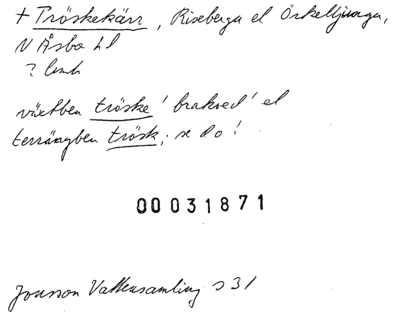 + Tröskekärr, Riseberga el Örkelljunga,
N Åsbo hd
? lmk
växtben tröske 'brakved' el
terrängben trösk; se do!
00031871
Jonsson Vattensamling s 31